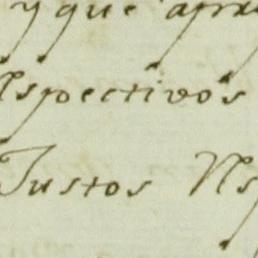 y que apra
Rspectivos
Justos Rs